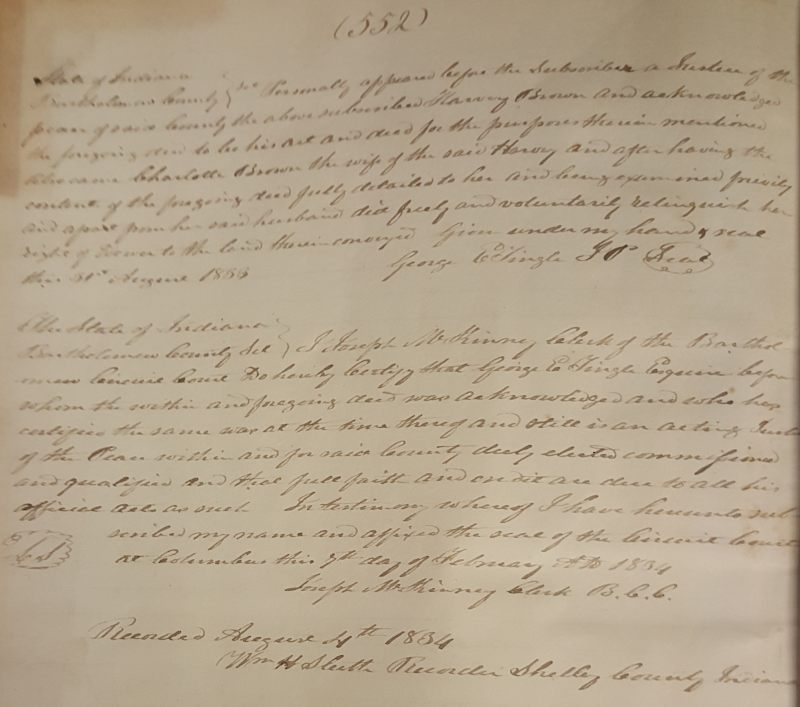 (552)
State of Indiana
Bartholomew County } Sct Personally appeared before the Subscriber a Justice of the
peace of said County the above subscribed Harvey Brown and acknowledged
the foregoing deed to be his act and deed for the purposes therein mentioned
Also came Charlotte Brown the wife of the said Harvey and after having the
content of the foregoing deed fully detailed to her and being examined privily
and apart from her said husband did freely and voluntarily relinquish her
right of Dower to the land therein conveyed Given under my hand & seal
this August 1833
George E Tingle J P Seal
The State of Indiana
Bartholomew County Sct } I Joseph McKinney Clerk of the Barthol
omew Circuit Court Do hereby Certify that George E Tingle Esquire before
whom the within and foregoing deed was acknowledged and who has
certified the same was at the time thereof and still is an acting Justice
of the Peace within and for said County duly elected commissioned
and qualified and that full faith and credit are due to all his
official acts as such In testimony whereof I have hereunto sub
scribed my name and affixed the seal of the Circuit Court
LS at Columbus this 7th day of February AD 1834
Joseph McKinney Clerk B.C.C.
Recorded August 4th 1834
Wm H Sleeth Recorder Shelby County Indiana